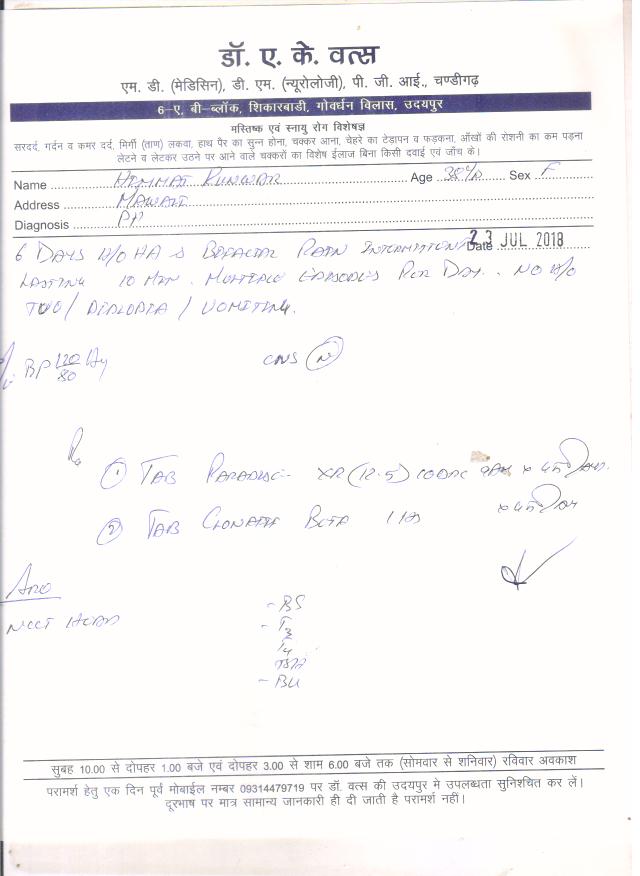 डॉ. ए. के. वत्स
एम. डी. (मेडिसिन), डी. एम. (न्यूरोलोजी), पी. जी. आई., चण्डीगढ़
6-ए, बी-ब्लॉक, शिकारबाडी, गोवर्धन विलास, उदयपुर
मस्तिष्क एवं स्नायु रोग विशेषज्ञ
सरदर्द, गर्दन व कमर दर्द, मिर्गी (ताण) लकवा, हाथ पैर का सुन्न होना, चक्कर आना, चेहरे का टेडापन व फड़कना, आँखों की रोशनी का कम पड़ना
लेटने व लेटकर उठने पर आने वाले चक्करों का विशेष ईलाज बिना किसी दवाई एवं जाँच के।
Name HIMMAT KUNWAR Age Sex F
Address MAWALI
Diagnosis
6 DAYS H/O HA BIFACIAL PAIN INTERMITTENT Date 23 JUL 2018
LASTING 10 MIN. MULTIPLE EPISODES PER DAY. NO H/O
TVO / DIPLOPIA / VOMITING.
BP 120/80 CNS N
Rx
1 TAB XR (12.5)
2 TAB BETA
NCCT HEAD
- BS
- T3
T4
TSH
- BU
सुबह 10.00 से दोपहर 1.00 बजे एवं दोपहर 3.00 से शाम 6.00 बजे तक (सोमवार से शनिवार) रविवार अवकाश
परामर्श हेतु एक दिन पूर्व मोबाईल नम्बर 09314479719 पर डॉ. वत्स की उदयपुर मे उपलब्धता सुनिश्चित कर लें।
दूरभाष पर मात्र सामान्य जानकारी ही दी जाती है परामर्श नहीं।